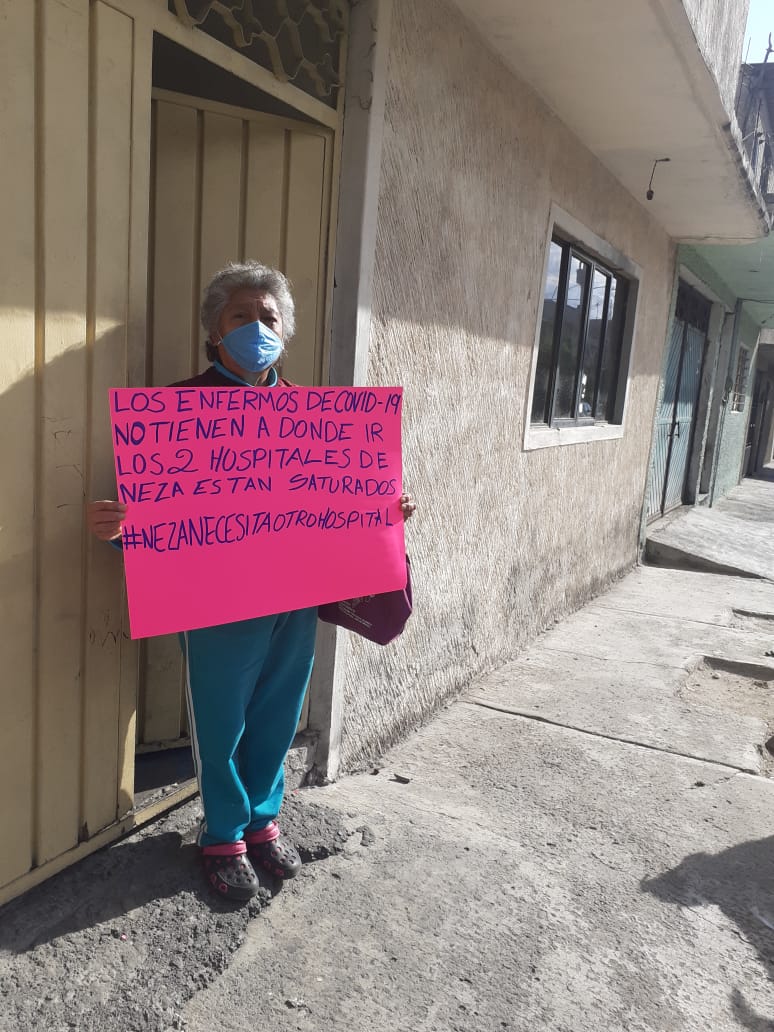 LOS ENFERMOS DE COVID-19
NO TIENEN A DONDE IR
LOS 2 HOSPITALES DE
NEZA ESTAN SATURADOS
#NEZANECESITAOTROHOSPITAL